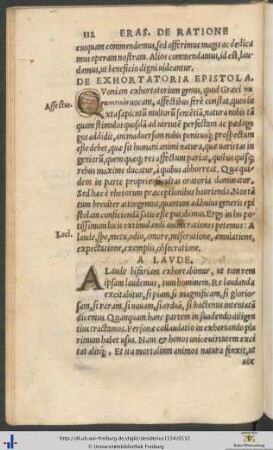 112 ERAS. DE RATIONE
cuiquam commendemus, sed offerimus magis ac dedica
mus operam nostram. Alios commendamus, id est, lau
damus, ut beneficio digni videantur.
DE EXHORTATORIA EPISTOLA.
Affectus.
QVoniam exhortatorium genus, quod Græci
vocant, affectibus ferè constat, quos iu
xta sapientū multorū sententiā, natura nobis tā
quam stimulos quosdā ad virtutē perfectam ac padago
gos addidit, animaduersam nobis penitus, prospectum
esse debet, quæ sit humani animi natura, quæ varietas in
generū, quem quæq; res affectum pariat, quibus quisq;
rebus maxime ducatur, à quibus abhorreat. Qua qui
dem in parte propria facultas oratoria dominatur.
Sed hæc è rhetorum præceptionibus haurienda. Nos tā
tum breuiter attingemus, quantum ad huius generis epi
stolam conficiendā satis esse putabimus. Ergo in his po
Loci.
tissimum locis extimulandi animi rationes petemus: A
laude, spe, metu, odio, amore, miseratione, æmulatione,
expectatione, exemplis, obsecratione.
A LAVDE.
A Laude bifariam exhortabimur, ut tum rem
ipsam laudemus, tum hominem. Re laudanda
excitabitur, si piam, si magnificam, si glorio-
sam, si raram, si nouam, si arduā, si hactenus intentatā
dicemus. Quanquam hanc partem in suadendo diligen
tius tractamus. Personæ collaudatio in exhortando plu
rimum habet usus. Nam & bonos unice uirtutem exci
tat alitq́;. Et ita mortalium animos natura finxit, ut
uix
http://dl.ub.uni-freiburg.de/diglit/desiderius1534/0132
© Universitätsbibliothek Freiburg